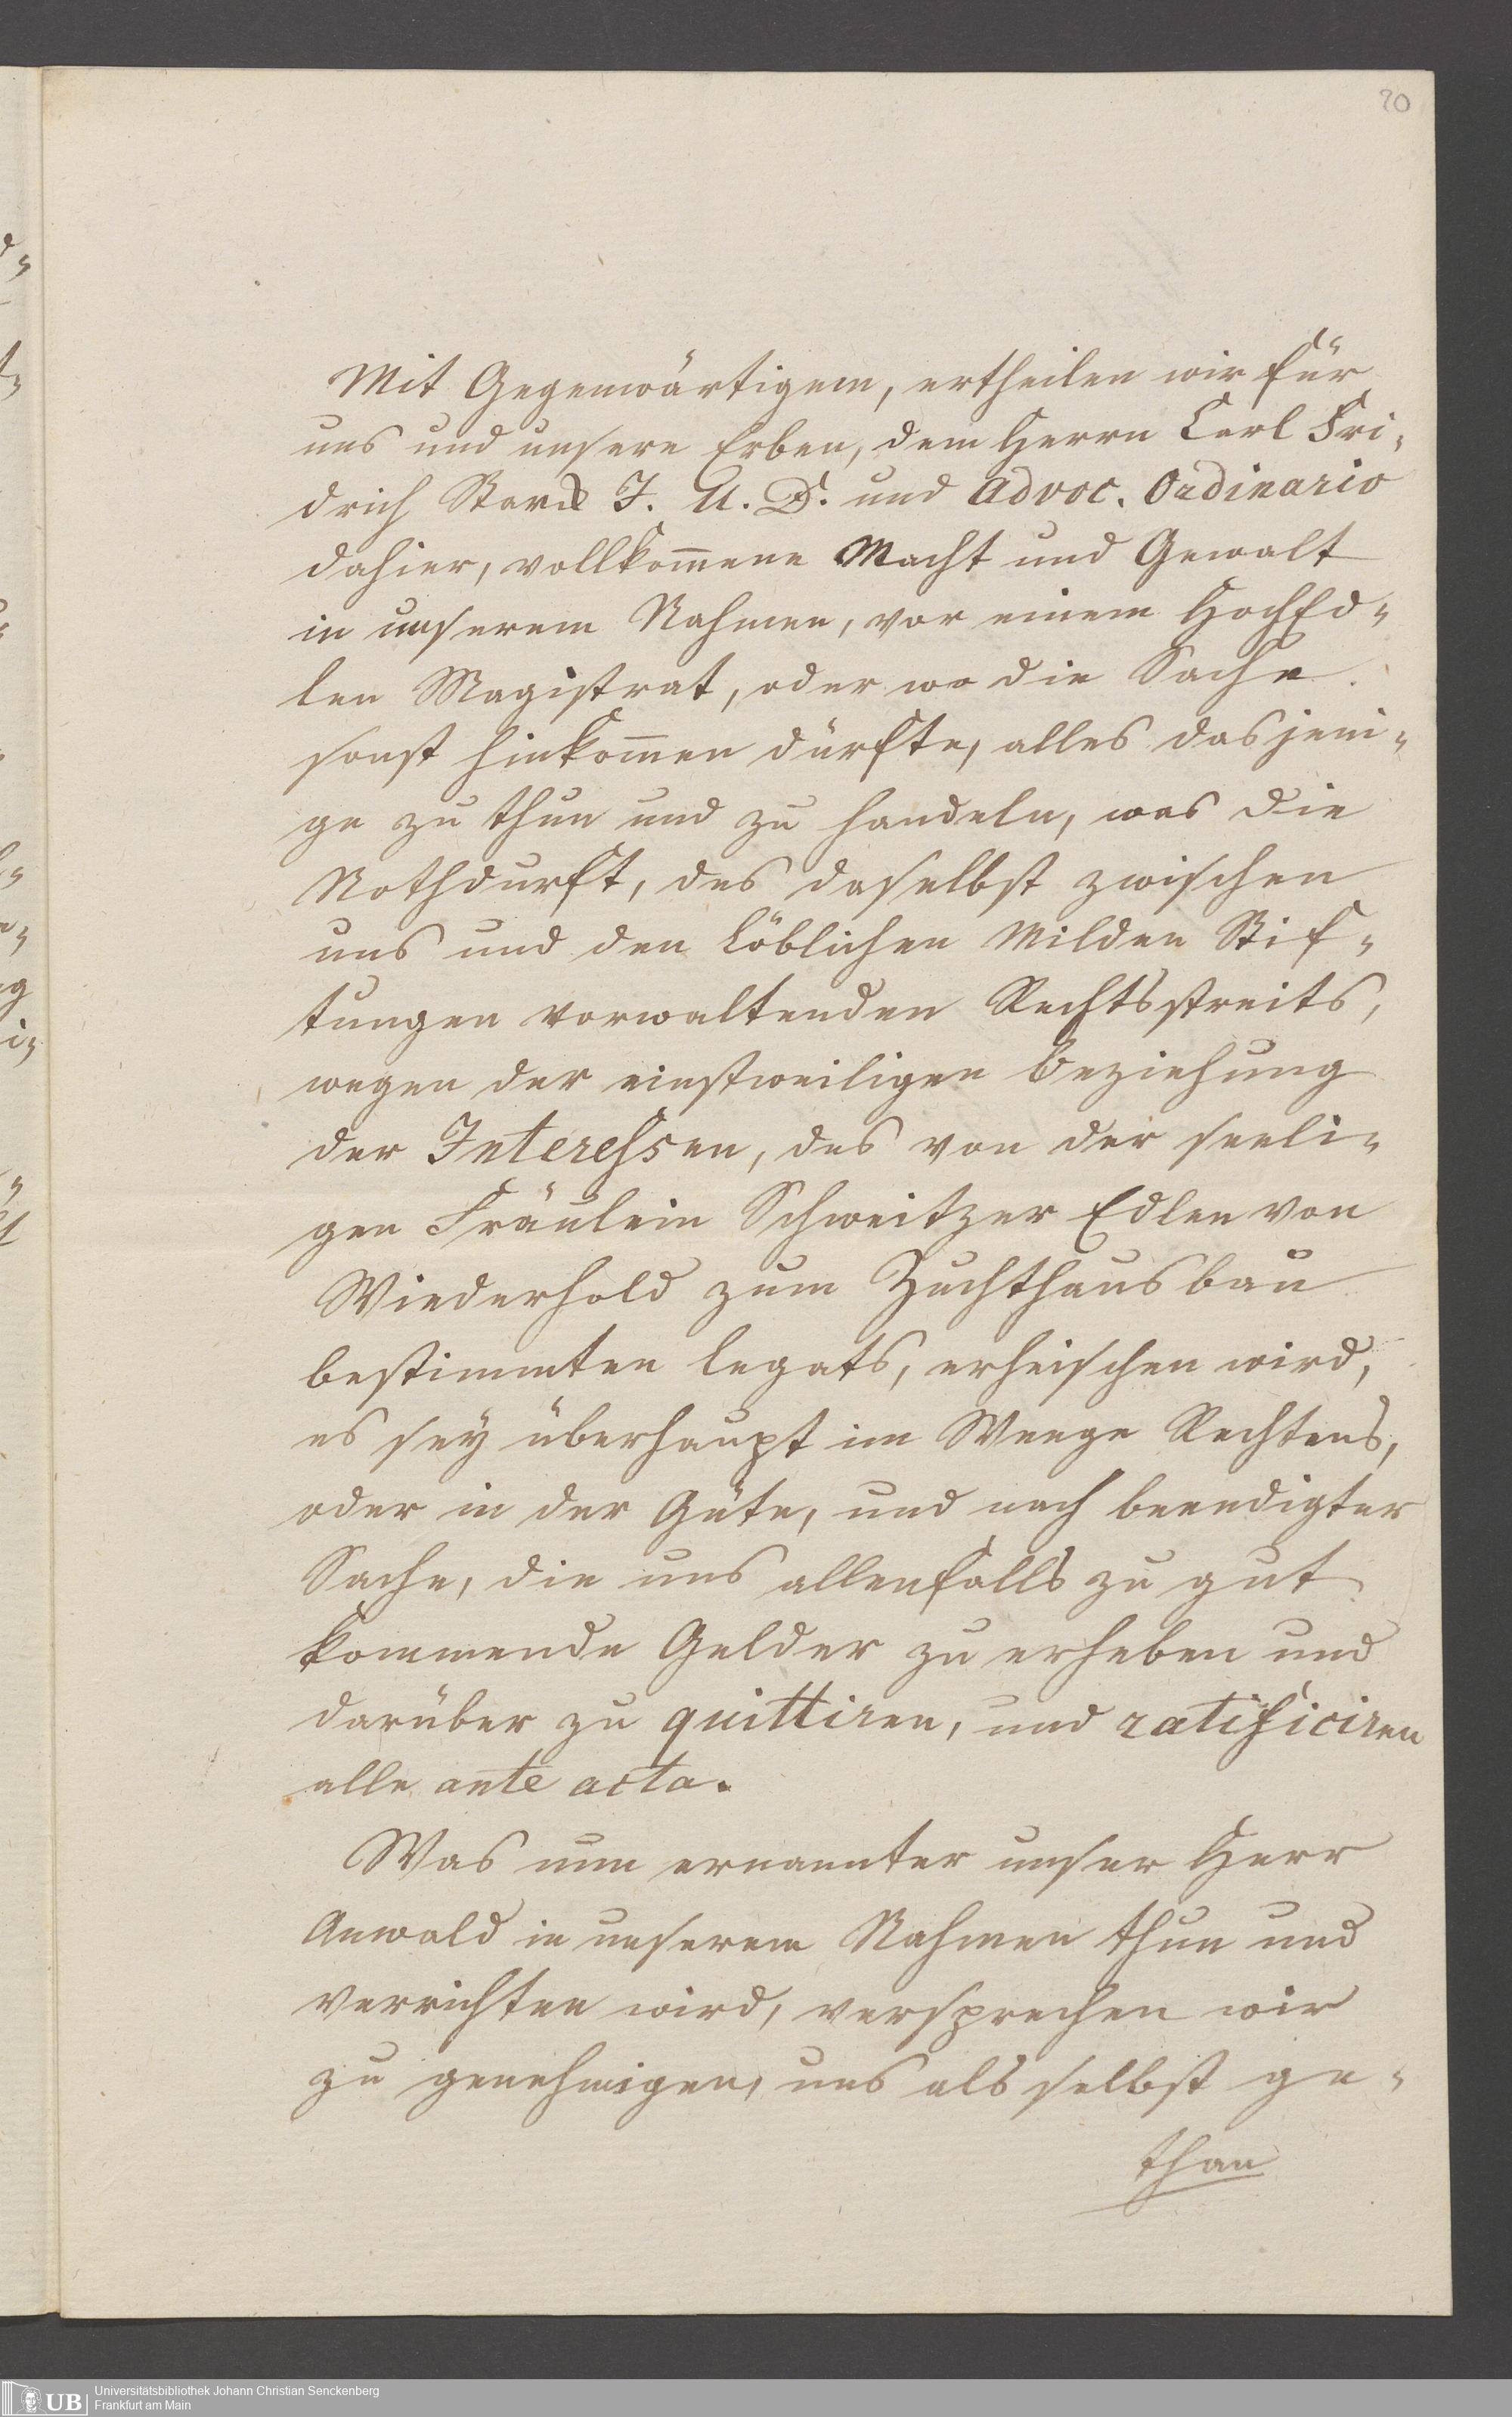 20
Mit Gegenwärtigem, ertheilen wir für
uns und unsere Erben, dem Herrn Carl Fri-
drich Starck J. U. D. und Advoc. Ordinario
dahier, vollkom̅ene Macht und Gewalt
in unserem Nahmen, vor einem HochEd-
len Magistrat, oder wo die Sache
sonst hinkom̅en dürfte, alles dasjeni-
ge zu thun und zu handeln, was die
Nothdurft, des daselbst zwischen
uns und den Löblichen Milden Stif-
tungen vorwaltenden Rechtsstreits,
wegen der einstweiligen Beziehung
der Interessen, des von der seeli-
gen Fräulein Schweitzer Edlen von
Wiederhold zum Zuchthausbau
bestimmten legats, erheischen wird,
es seÿ überhaupt im Weege Rechtens,
oder in der Güte, und nach beendigter
Sache, die uns allenfalls zu gut
kommende Gelder zu erheben und
darüber zu quittiren, und ratificiren
alle ante acta.
Was nun ernannter unser Herr
Anwald in unserem Nahmen thun und
verrichten wird, versprechen wir
zu genehmigen, uns als selbst ge-
than
UB
Universitätsbibliothek Johann Christian Senckenberg
Frankfurt am Main